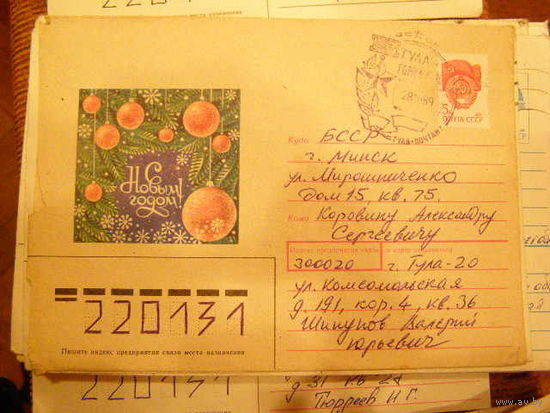 ТУЛА
5к
ПОЧТА СССР
С
Новым
годом!
Куда БССР
г. Минск
ул. Мирошниченко
дом 15, кв. 75.
Кому Коровину Александру
Сергеевичу
Индекс предприятия связи и адрес отправителя
300020 г. Тула-20
ул. Комсомольская
д. 191, кор. 4, кв. 36
Шипунов Валерий
Юрьевич
220131
Пишите индекс предприятия связи места назначения
220131
д 31 кв 22
Тюрреев Н. Г.
www.av.by